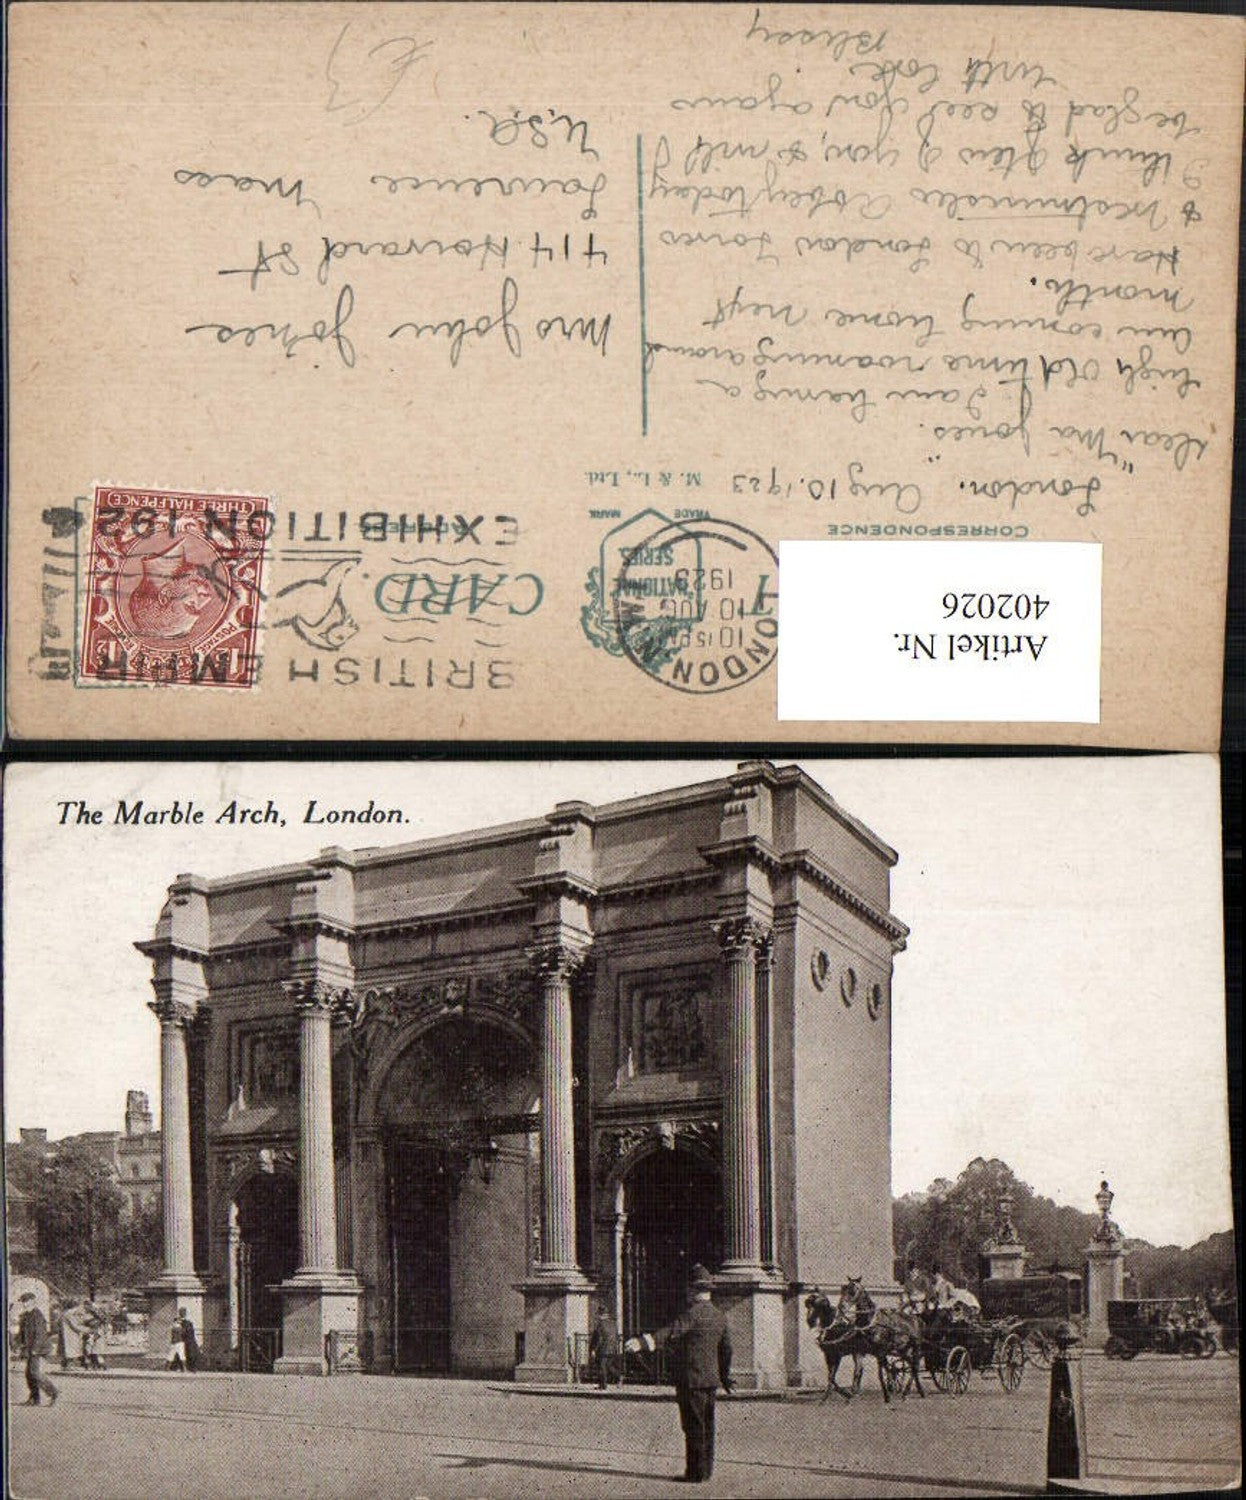 Artikel Nr.
402026
CARD.
ADDRESS
NATIONAL
SERIES
TRADE MARK
M. & L., Ltd.
CORRESPONDENCE
LONDON
10 15 PM
10 AUG
1923
BRITISH EMPIRE
EXHIBITION 192
POSTAGE REVENUE
THREE HALFPENCE
London. Aug 10. 1923
Dear "Ma Jones".
I am having a
high old time roaming around
Am coming home next
month.
Have been to London Tower
& Westminster Abbey today
I think often of you, & will
be glad to see you again
With love
Mrs John Jones
414 Howard St
Lawrence Mass
U.S.A.
£3
The Marble Arch, London.